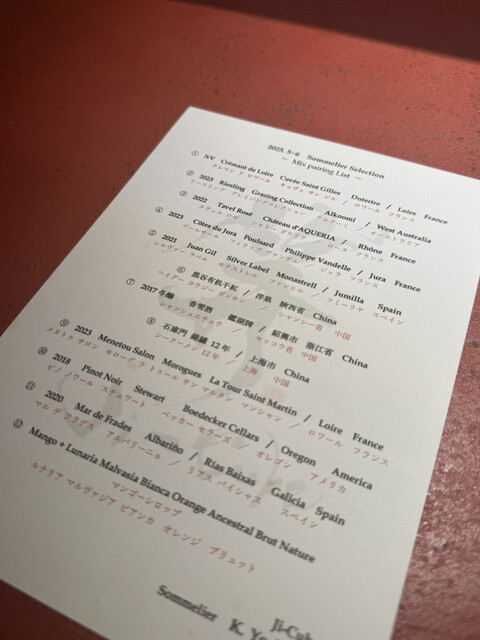 2025. 5-6 Sommelier Selection
～ Mix pairing List ～
① NV Crémant de Loire Cuvée Saint Gilles Dotertre / Loire France
クレマン ド ロワール キュヴェ サン ジル / ロワール フランス
② 2023 Riesling Grazing Collection Alkoomi / West Australia
リースリング グレイジングコレクション アルクーミ / オーストラリア
③ 2022 Tavel Rosé Château d'AQUERIA / Rhône France
タヴェル ロゼ シャトー ダケリア / ローヌ フランス
④ 2023 Côtes du Jura Poulsard Philippe Vandelle / Jura France
プールサール フィリップ ヴァンデル / ジュラ フランス
⑤ 2021 Juan Gil Silver Label Monastrell / Jumilla Spain
シルヴァー ラベル モナストレル / フミーリャ スペイン
⑥ 黒谷有机干紅 / 洋県 陝西省 China
ヘイグー ヨウジー ガンホン / シャンシー省 中国
⑦ 2017 冬醸 香雪酒 鑑湖牌 / 紹興市 浙江省 China
シャンシュエチュウ / セッコウ省 中国
⑧ 石庫門 錦繍 12 年 / 上海市 China
シークーメン 12年 / 上海 中国
⑨ 2023 Menetou Salon Morogues La Tour Saint Martin / Loire France
メヌトゥ サロン モローグ ラ トゥール サン マルタン / ロワール フランス
⑩ 2018 Pinot Noir Stewart Boedecker Cellars / Oregon America
ピノ ノワール スチュワート ベッカー セラーズ / オレゴン アメリカ
⑪ 2020 Mar de Frades Albariño / Rias Baixas Galicia Spain
マル デ フラデス アルバリーニョ / リアス バイシャス スペイン
⑫ Mango + Lunaria Malvasia Bianca Orange Ancestral Brut Nature
マンゴーシロップ
ルナリア マルヴァジア ビアンカ オレンジ ブリュット
Ji-Cub
Sommelier K.